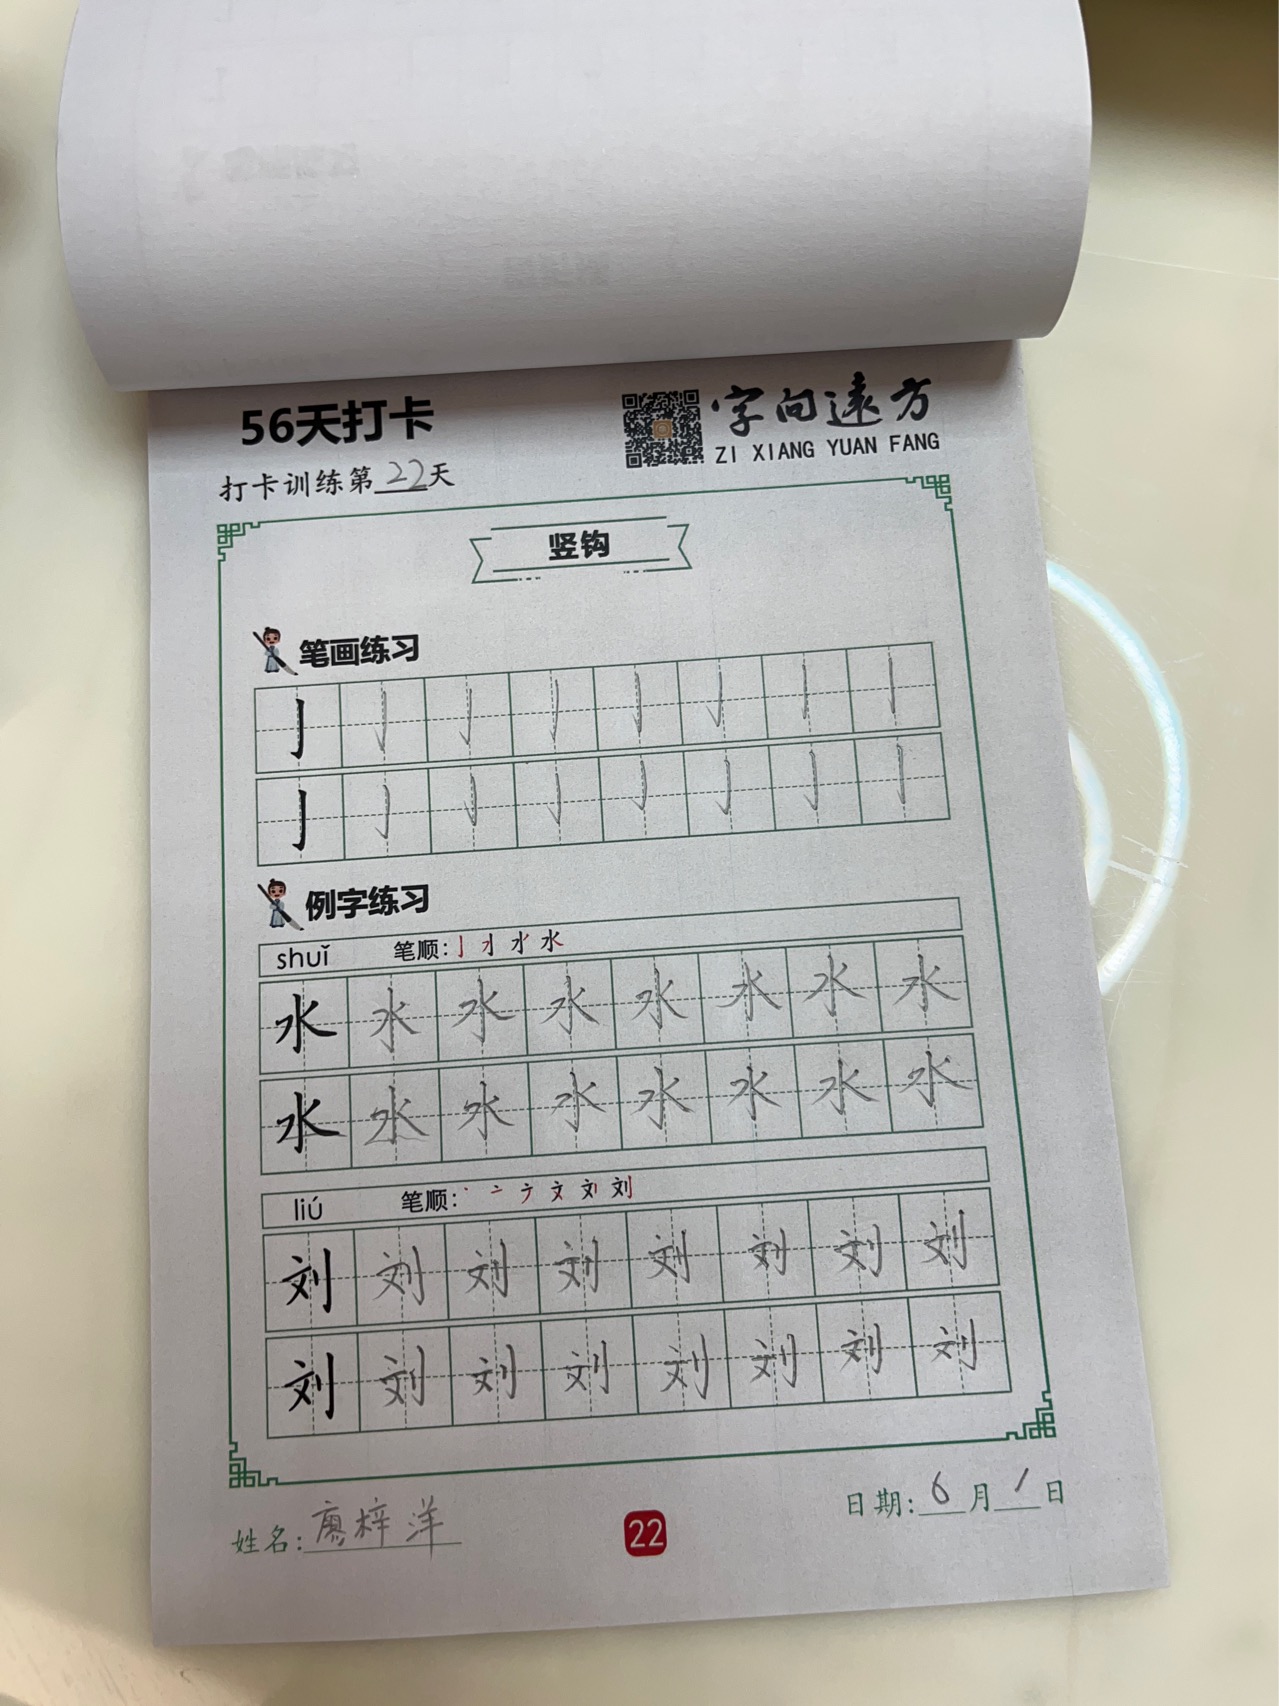 56天打卡
字向远方
ZI XIANG YUAN FANG
打卡训练第22天
竖钩
笔画练习
亅 亅 亅 亅 亅 亅 亅 亅
亅 亅 亅 亅 亅 亅 亅 亅
例字练习
shuǐ 笔顺:
水 水 水 水 水 水 水 水
水 水 水 水 水 水 水 水
liú 笔顺:
刘 刘 刘 刘 刘 刘 刘 刘
刘 刘 刘 刘 刘 刘 刘 刘
姓名:廖梓洋
22
日期:6月1日